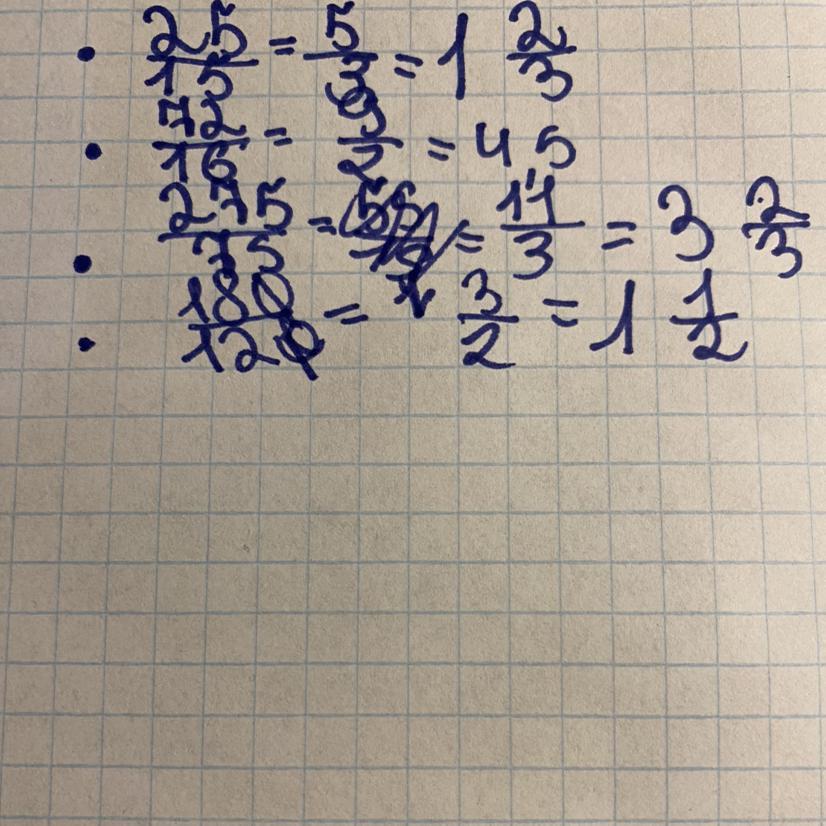 • 25/15 = 5/3 = 1 2/3
• 72/16 = 9/2 = 4 5
• 275/75 = = 11/3 = 3 2/3
• 180/120 = 3/2 = 1 1/2